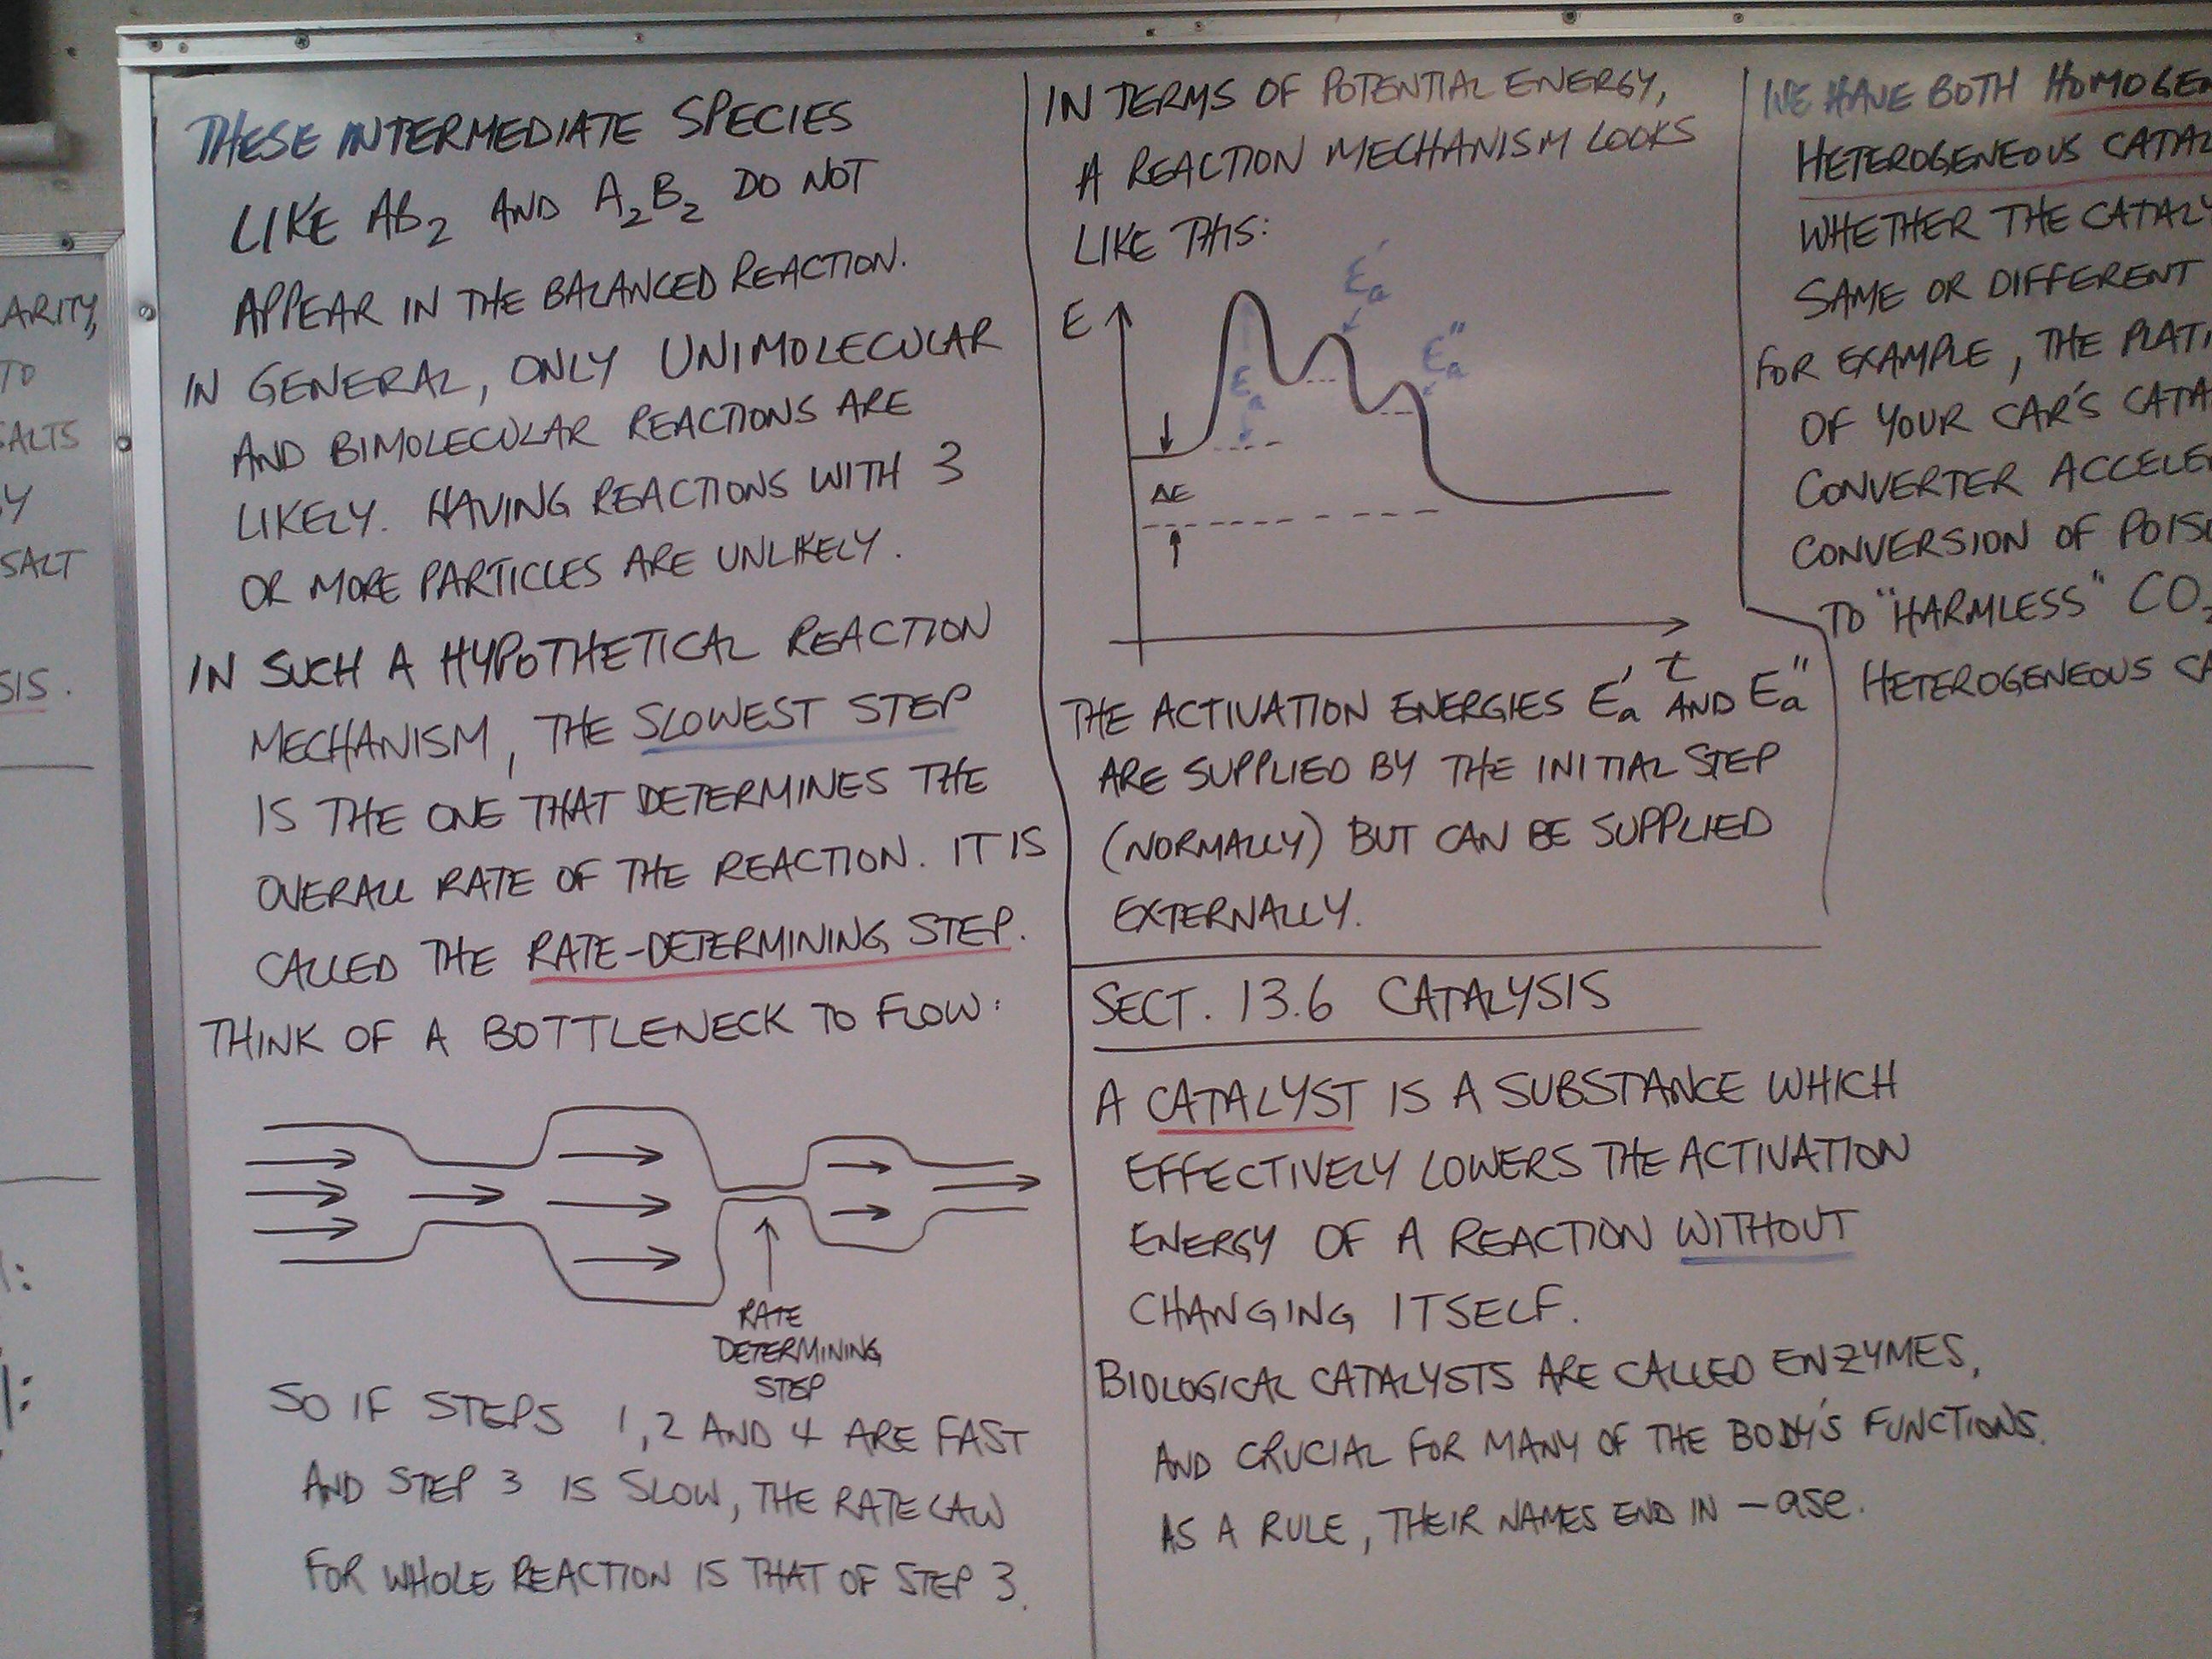 ARITY,
TO
SALTS
Y
SALT
SIS.
THESE INTERMEDIATE SPECIES
LIKE AB2 AND A2B2 DO NOT
APPEAR IN THE BALANCED REACTION.
IN GENERAL, ONLY UNIMOLECULAR
AND BIMOLECULAR REACTIONS ARE
LIKELY. HAVING REACTIONS WITH 3
OR MORE PARTICLES ARE UNLIKELY.
IN SUCH A HYPOTHETICAL REACTION
MECHANISM, THE SLOWEST STEP
IS THE ONE THAT DETERMINES THE
OVERALL RATE OF THE REACTION. IT IS
CALLED THE RATE-DETERMINING STEP.
THINK OF A BOTTLENECK TO FLOW:
RATE
DETERMINING
STEP
SO IF STEPS 1,2 AND 4 ARE FAST
AND STEP 3 IS SLOW, THE RATE LAW
FOR WHOLE REACTION IS THAT OF STEP 3.
IN TERMS OF POTENTIAL ENERGY,
A REACTION MECHANISM LOOKS
LIKE THIS:
E
Ea
Ea'
Ea"
ΔE
t
THE ACTIVATION ENERGIES Ea' AND Ea"
ARE SUPPLIED BY THE INITIAL STEP
(NORMALLY) BUT CAN BE SUPPLIED
EXTERNALLY.
SECT. 13.6 CATALYSIS
A CATALYST IS A SUBSTANCE WHICH
EFFECTIVELY LOWERS THE ACTIVATION
ENERGY OF A REACTION WITHOUT
CHANGING ITSELF.
BIOLOGICAL CATALYSTS ARE CALLED ENZYMES,
AND CRUCIAL FOR MANY OF THE BODY'S FUNCTIONS.
AS A RULE, THEIR NAMES END IN -ase.
WE HAVE BOTH HOMOGEN
HETEROGENEOUS CATAL
WHETHER THE CATALY
SAME OR DIFFERENT
FOR EXAMPLE, THE PLATI
OF YOUR CAR'S CATA
CONVERTER ACCELE
CONVERSION OF POIS
TO "HARMLESS" CO2
HETEROGENEOUS CA